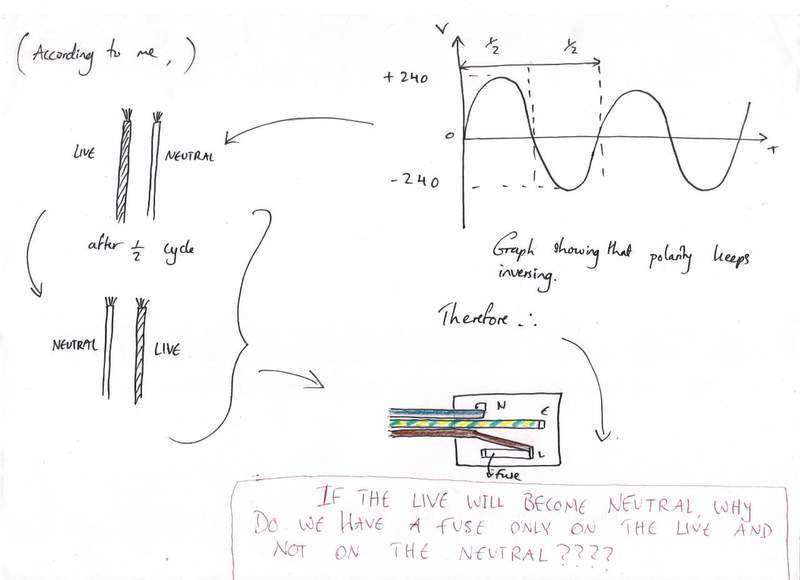 (According to me,)
LIVE
NEUTRAL
after 1/2 cycle
NEUTRAL
LIVE
V
1/2
1/2
+240
0
-240
T
Graph showing that polarity keeps
inversing.
Therefore ∴
N
E
L
fuse
IF THE LIVE WILL BECOME NEUTRAL, WHY
DO WE HAVE A FUSE ONLY ON THE LIVE AND
NOT ON THE NEUTRAL????